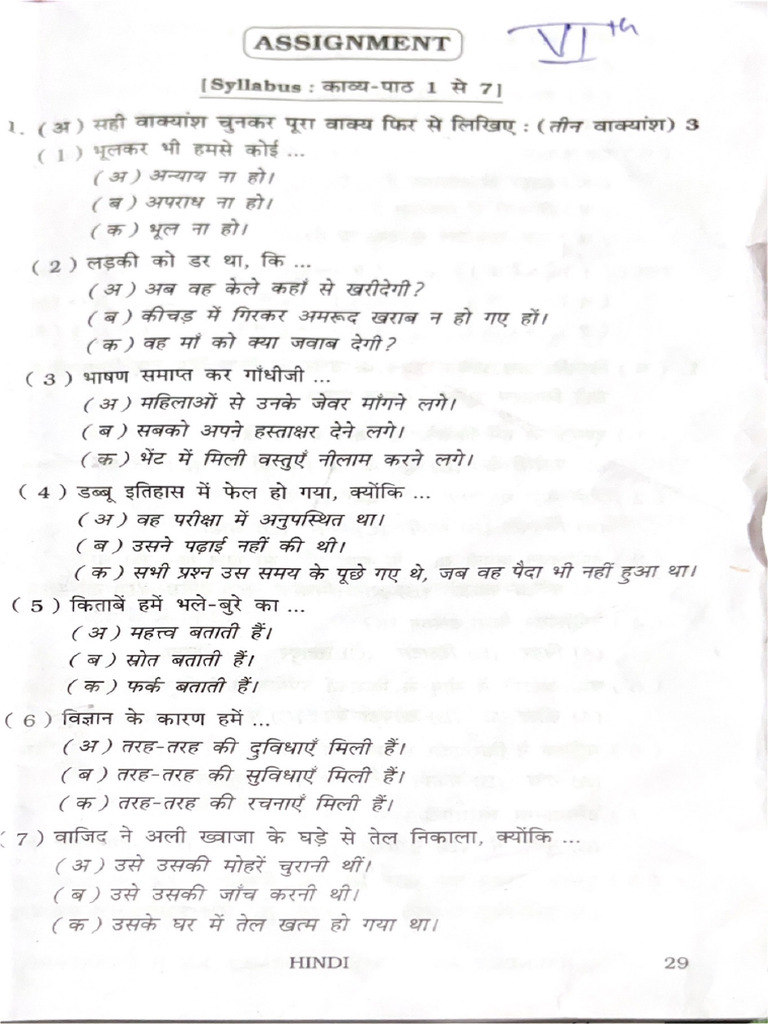 ASSIGNMENT
VIth
[Syllabus : काव्य-पाठ 1 से 7]
1. (अ) सही वाक्यांश चुनकर पूरा वाक्य फिर से लिखिए : (तीन वाक्यांश) 3
(1) भूलकर भी हमसे कोई ...
(अ) अन्याय ना हो।
(ब) अपराध ना हो।
(क) भूल ना हो।
(2) लड़की को डर था, कि ...
(अ) अब वह केले कहाँ से खरीदेगी?
(ब) कीचड़ में गिरकर अमरूद खराब न हो गए हों।
(क) वह माँ को क्या जवाब देगी?
(3) भाषण समाप्त कर गाँधीजी ...
(अ) महिलाओं से उनके जेवर माँगने लगे।
(ब) सबको अपने हस्ताक्षर देने लगे।
(क) भेंट में मिली वस्तुएँ नीलाम करने लगे।
(4) डब्बू इतिहास में फेल हो गया, क्योंकि ...
(अ) वह परीक्षा में अनुपस्थित था।
(ब) उसने पढ़ाई नहीं की थी।
(क) सभी प्रश्न उस समय के पूछे गए थे, जब वह पैदा भी नहीं हुआ था।
(5) किताबें हमें भले-बुरे का ...
(अ) महत्त्व बताती हैं।
(ब) स्रोत बताती हैं।
(क) फर्क बताती हैं।
(6) विज्ञान के कारण हमें ...
(अ) तरह-तरह की दुविधाएँ मिली हैं।
(ब) तरह-तरह की सुविधाएँ मिली हैं।
(क) तरह-तरह की रचनाएँ मिली हैं।
(7) वाजिद ने अली ख्वाजा के घड़े से तेल निकाला, क्योंकि ...
(अ) उसे उसकी मोहरें चुरानी थीं।
(ब) उसे उसकी जाँच करनी थी।
(क) उसके घर में तेल खत्म हो गया था।
HINDI 29